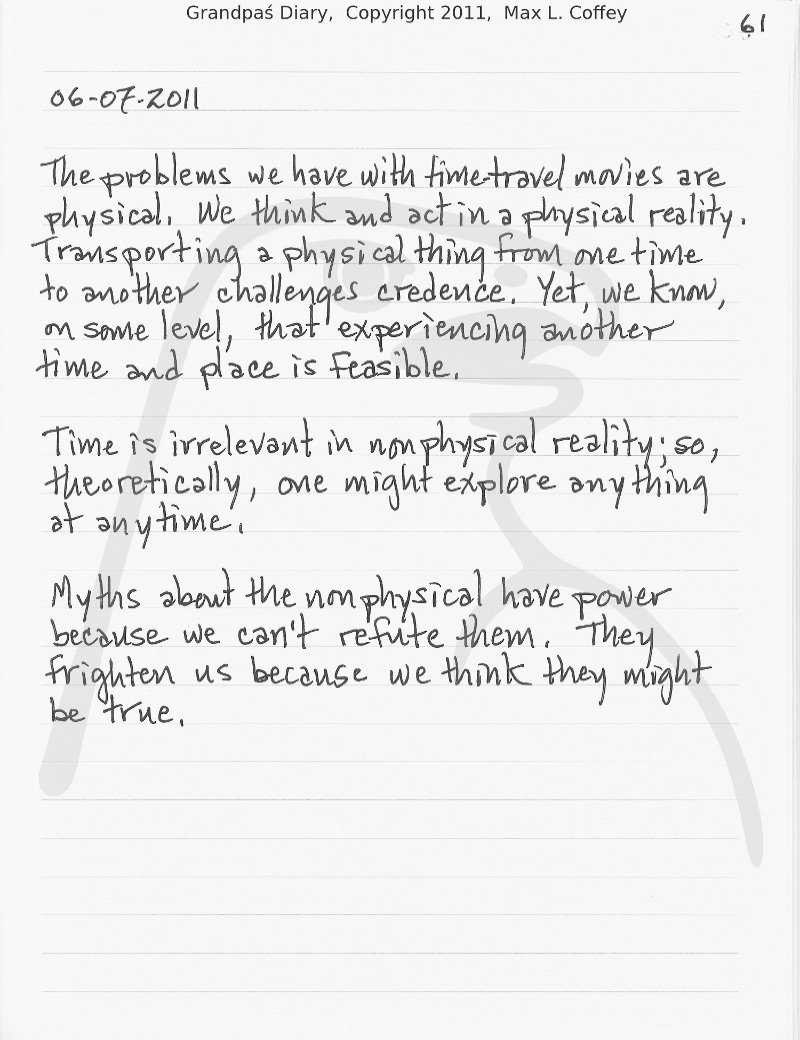 Grandpaś Diary, Copyright 2011, Max L. Coffey
61
06-07-2011
The problems we have with time-travel movies are
physical. We think and act in a physical reality.
Transporting a physical thing from one time
to another challenges credence. Yet, we know,
on some level, that experiencing another
time and place is feasible.
Time is irrelevant in nonphysical reality; so,
theoretically, one might explore anything
at anytime.
Myths about the nonphysical have power
because we can't refute them. They
frighten us because we think they might
be true.